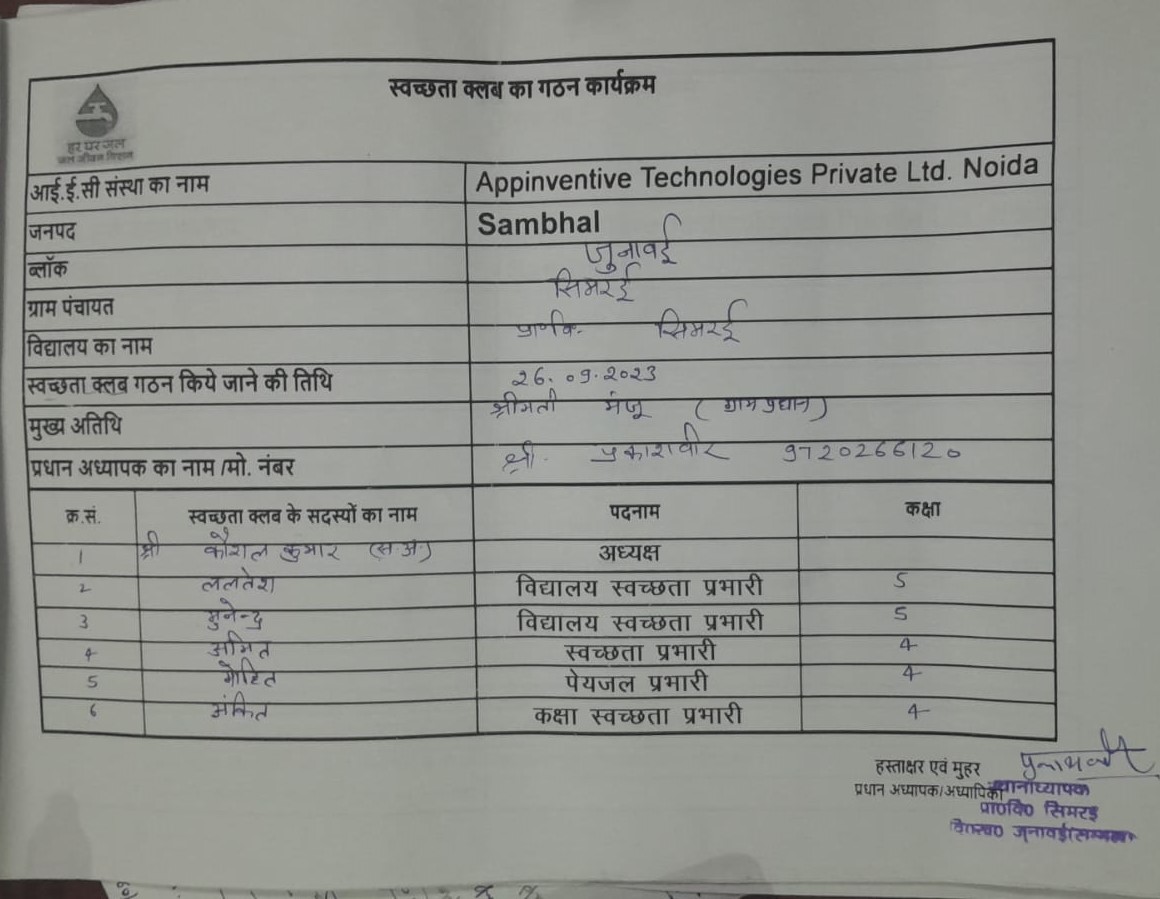 स्वच्छता क्लब का गठन कार्यक्रम
हर घर जल
जल जीवन मिशन
आई.ई.सी संस्था का नाम Appinventive Technologies Private Ltd. Noida
जनपद Sambhal
ब्लॉक जुनावई
ग्राम पंचायत सिमरई
विद्यालय का नाम प्रा०वि. सिमरई
स्वच्छता क्लब गठन किये जाने की तिथि 26.09.2023
मुख्य अतिथि श्रीमती मंजू (ग्राम प्रधान)
प्रधान अध्यापक का नाम /मो. नंबर श्री. प्रकाशवीर 9720266120
क्र.सं. स्वच्छता क्लब के सदस्यों का नाम पदनाम कक्षा
1 श्री कौशल कुमार (स.अ.) अध्यक्ष
2 ललतेश विद्यालय स्वच्छता प्रभारी 5
3 मुनेन्द्र विद्यालय स्वच्छता प्रभारी 5
4 अमित स्वच्छता प्रभारी 4
5 मोहित पेयजल प्रभारी 4
6 अंकित कक्षा स्वच्छता प्रभारी 4
हस्ताक्षर एवं मुहर
प्रधान अध्यापक/अध्यापिका
प्रा०वि० सिमरई
जुनावई